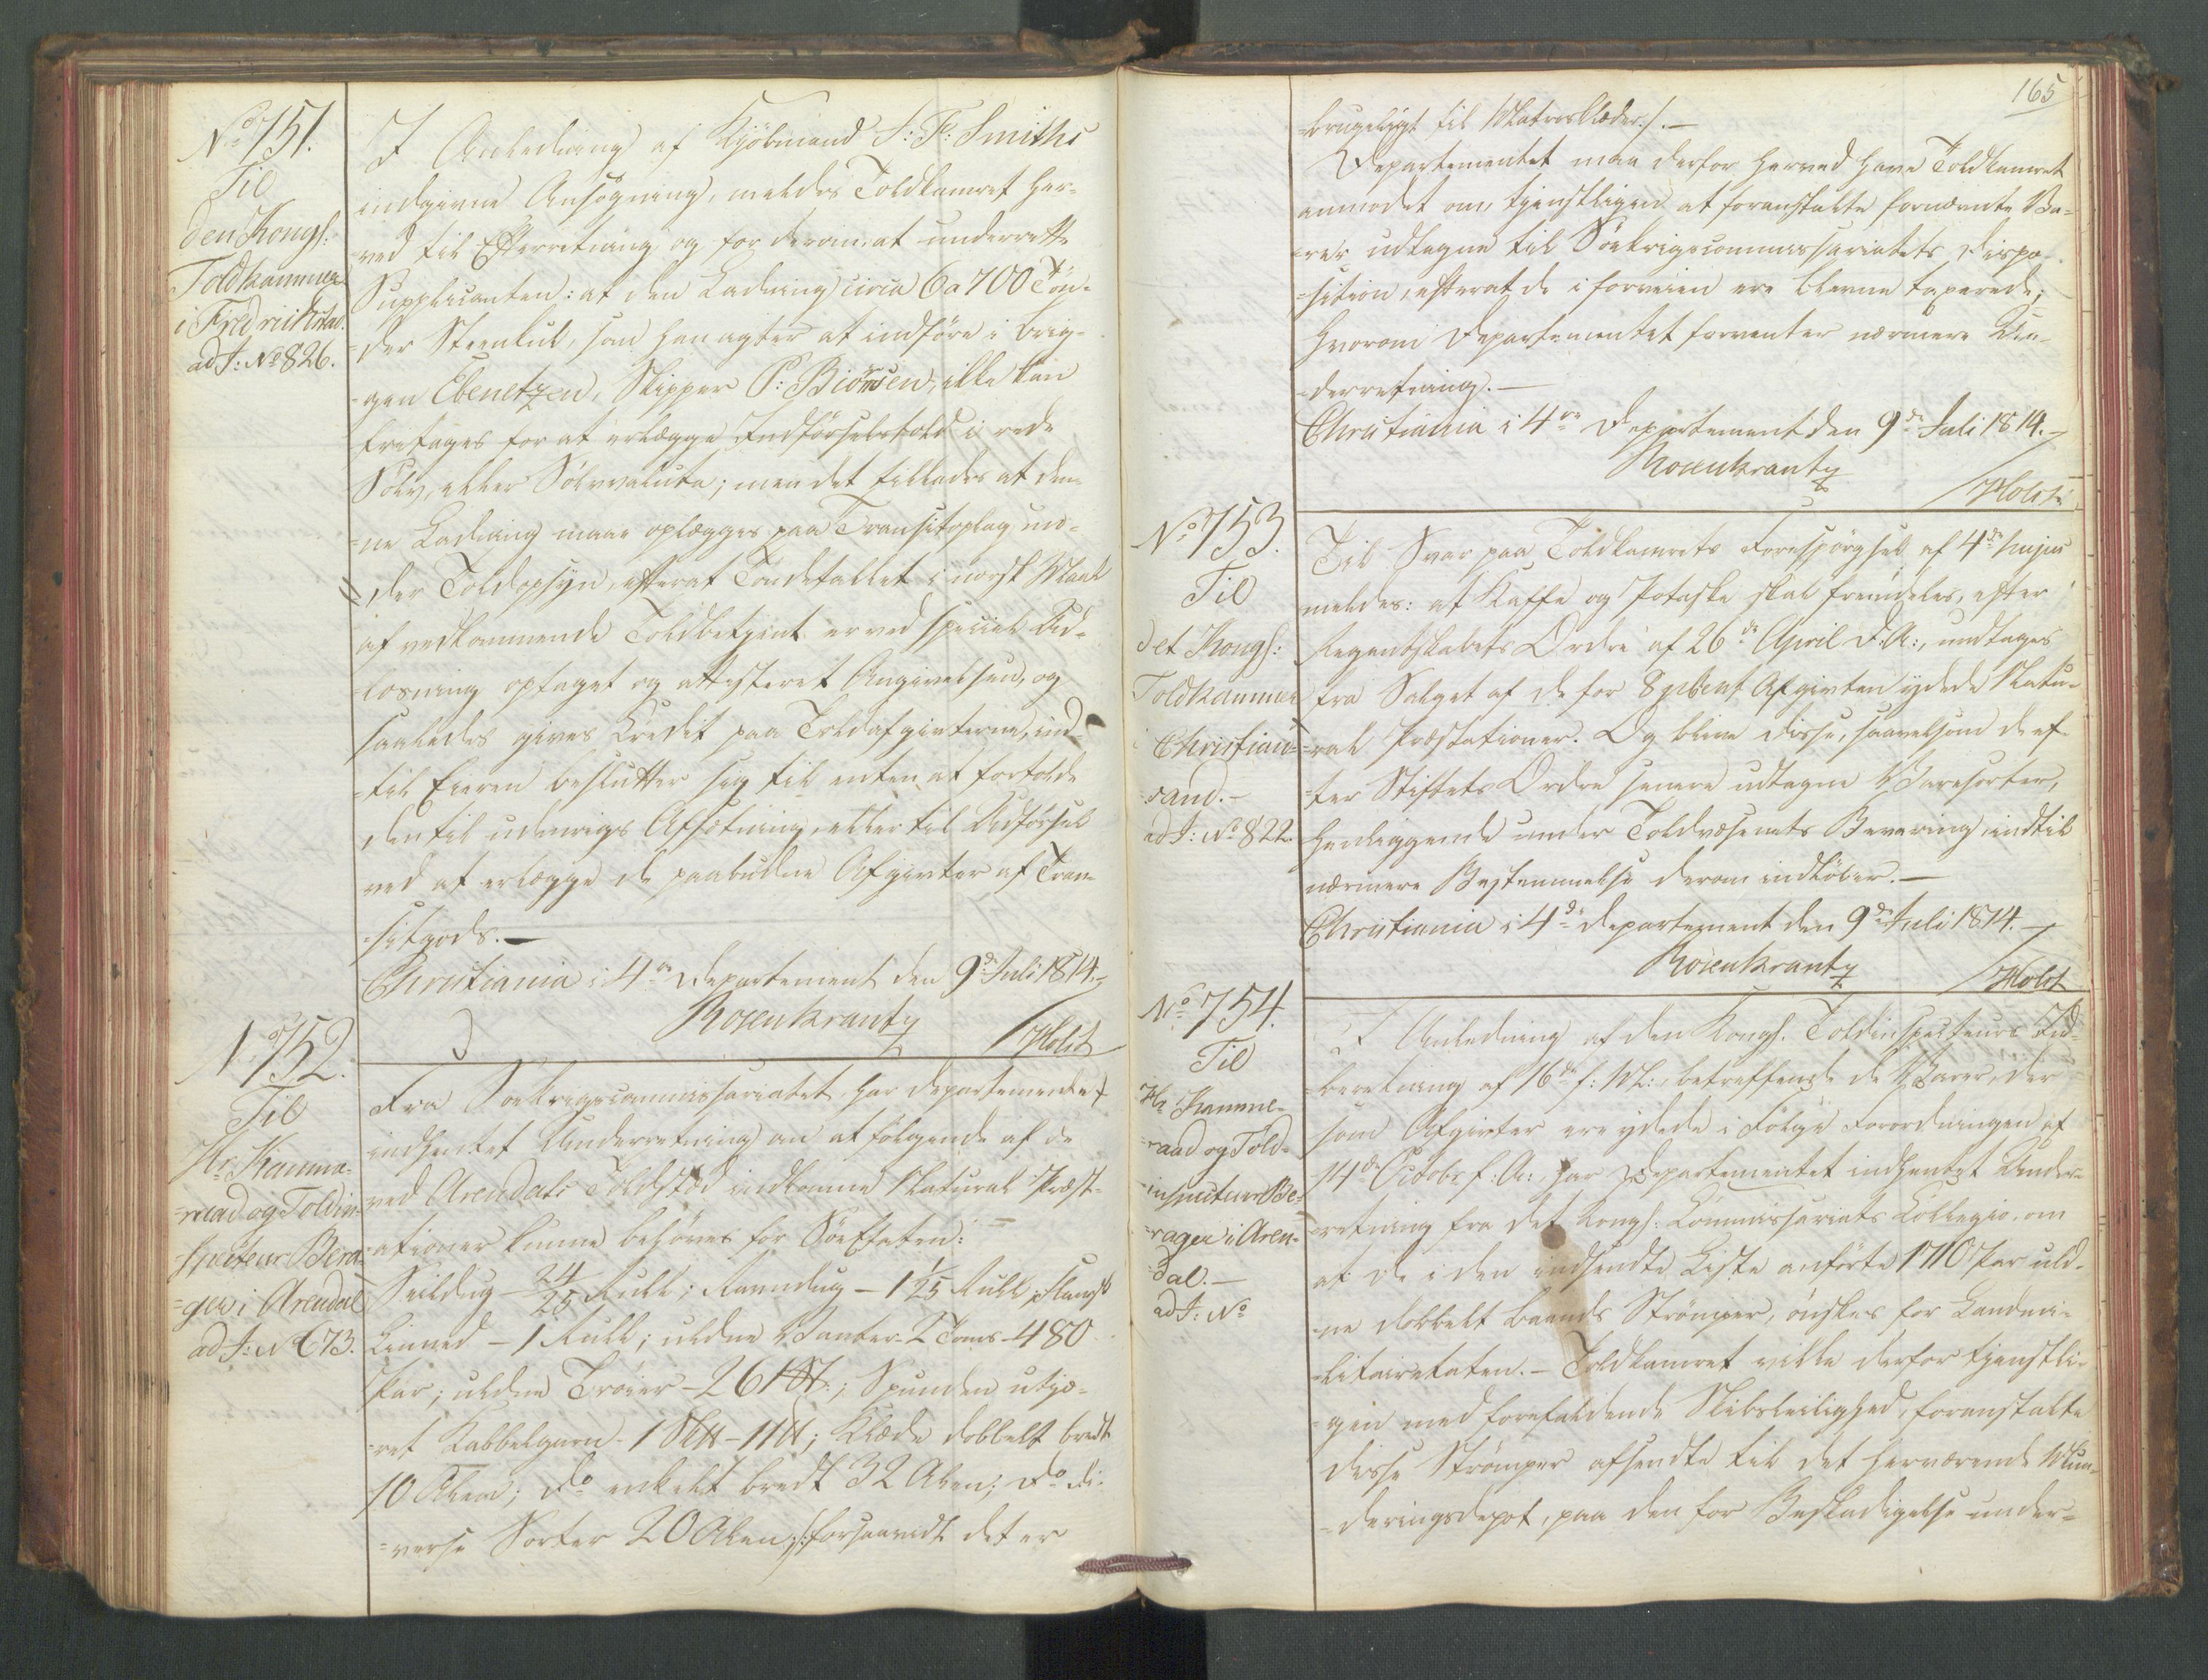 No 751.
Til
den Kongl:
Toldkammer
i Fredrichstad.
ad J: No 826.
I Anledning af Kjöbmand S: F: Smiths
indgivne Ansögning, meldes Toldkamret her-
ved til Efterretning og for derom at underrette
Supplicanten: at den Ladning circa 6 a 700 Tön-
der Steenkul, som han agter at indföre i Brig-
gen Ebenetzen, Skipper P: Biörnsen, ikke kan
fritages for at erlægge Indförselstold i rede
Sölv, eller Sölvvaluta; men det tillades at den-
ne Ladning maae oplægges paa Transitoplag un-
der Toldopsyn, efterat Töndetallet i norsk Maal
af vedkommende Toldbetjent er ved speciel Ud-
losning optaget og attesteret Angivelsen, og
saaledes gives Credit paa Toldafgivterne, ind-
til Eieren beslutter sig til enten at fortolde
den til indenrigs Afsætning, eller til Udförsel
ved at erlægge de paabudne Afgivter af Tran-
sitgods. —
Christiania i 4de Departement den 9de Juli 1814. —
Rosenkrantz
/Holst
No 752.
Til
Hr. Kamme-
rraad og Toldin-
specteur Bera-
ger i Arendal
ad J: No 673.
Fra Söekrigscommissariatet har Departementet
indhentet Underretning om at fölgende af de
ved Arendals Toldsted indkomne Natural Præst-
ationer kunne behöves for Söe Etaten:
Seildug — 24/25 Rull; Ravndug — 1 1/25 Rull; Flamsk
Linned — 1 Rull; uldne Vanter — 480
Par; uldne Tröier — 261 St.; Spunden utjæ-
ret Kabbelgarn — 1 Sk℔ — 11 ℔; Klæde dobbelt bredt
10 Alen; do enkelt bredt 32 Alen; do di-
verse Sorter 20 Alen /: forsaavidt det er
165
brugeligt til Matrosklæder :/. —
Departementet maa derfor herved have Toldkamret
anmodet om, tjenstligen at foranstalte fornævnte Va-
rer udtagne til Söekrigscommissariatets Dispo-
sition, efterat de i forveien ere blevne taxerede;
hvorom Departementet forventer nærmere Un-
derretning. —
Christiania i 4de Departement den 9de Juli 1814. —
Rosenkrantz
/Holst
No 753.
Til
det Kongl:
Toldkammer
i Christian-
sand. —
ad J: No 822.
Til Svar paa Toldkamrets Forespörgsel af 4de hujus
meldes: at Kaffe og Potaske skal fremdeles, efter
Regentskabets Ordre af 26de April d. A:, undtages
fra Salget af de for 8 prCent Afgivten ydede Natu-
ral Præstationer. Og blive disse, saavelsom de ef-
ter Stiftets Ordre senere udtagne Varesorter,
henliggende under Toldvæsenets Bevaring, indtil
nærmere Bestemmelse derom indlöber. —
Christiania i 4de Departement den 9de Juli 1814. —
Rosenkrantz
/Holst
No 754.
Til
Hr Kamme-
rraad og Told-
inspecteur Be-
rager i Aren-
dal. —
ad J: No
I Anledning af den Kongl. Toldinspecteurs Ind-
beretning af 16de f: M:, betreffende de Varer, der
som Afgivter ere ydede i Fölge Forordningen af
14de Octobr f: A: har Departementet indhentet Under-
retning fra det Kongl: Commissariats Collegio, om
at de i den indsendte Liste anförte 1710 Par uld-
ne dobbelt baands Strömper, önskes for Landmi-
litairetaten. — Toldkamret ville derfor tjenstli-
gen med forefaldende Skibsleilighed, foranstalte
disse Strömper afsendte til det herværende Mun-
deringsdepot, paa den for Beskadigelse under-